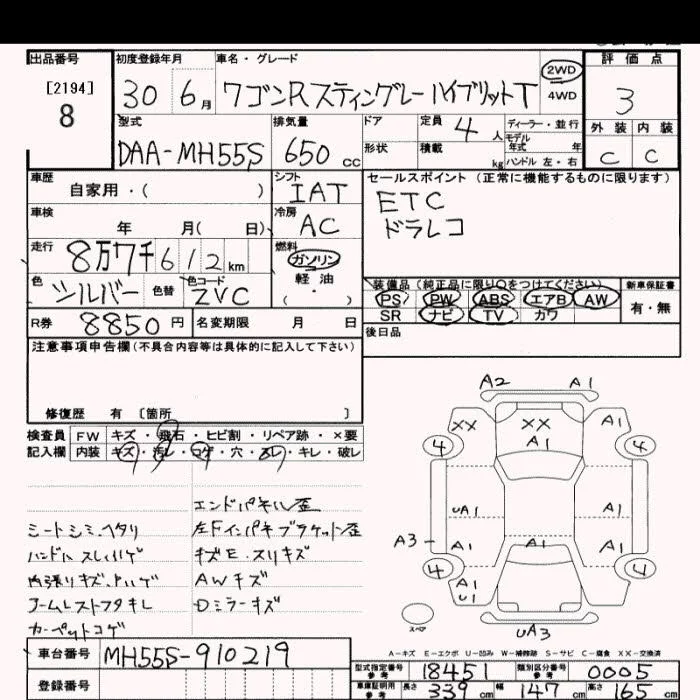 出品番号
[2194]
8
初度登録年月
30 6 月
車名・グレード
ワゴンRスティングレーハイブリットT
2WD
4WD
評価点
3
外装 内装
C C
型式
DAA-MH55S
排気量
650 cc
ドア
形状
定員 4 人
積載 kg
ディーラー・並行
モデル年式 年
ハンドル 左・右
車歴
自家用・( )
シフト
IAT
セールスポイント(正常に機能するものに限ります)
ETC
ドラレコ
車検
年 月( 日)
冷房
AC
走行
8万7千612 km
燃料
ガソリン
軽油
( ・ )
色
シルバー
色替
色コード
ZVC
装備品(純正品に限り○をつけてください)
PS PW ABS エアB AW
SR ナビ TV カワ
新車保証書
有・無
R券 8850円
名変期限 月 日
後日品
注意事項申告欄(不具合内容等は具体的に記入して下さい)
修復歴 有 〔箇所 〕
検査員記入欄
FW キズ・飛石・ヒビ割・リペア跡・×要
内装 キズ・汚レ・コゲ・穴・スレ・キレ・破レ
エンドパネル歪
シートシミ、ヘタリ
左Fインパネブラケット歪
ハンドルスレ、ハゲ
キズE、スリキズ
内張りキズ、ハゲ
AWキズ
アームレストフタキレ
Dミラーキズ
カーペットコゲ
A2 A1
XX XX A1
A1
4 4
UA1 A1
A3 A1 A1 A1
4 4
A1
U1
スペア
UA3
A-キズ E-エクボ U-凹み W-補修跡 S-サビ C-腐食 XX-交換済
車台番号 MH55S-910219
登録番号
型式指定番号 参考 18451
類別区分番号 参考 0005
車庫証明用 参考 長さ 339 cm 幅 147 cm 高さ 165 cm